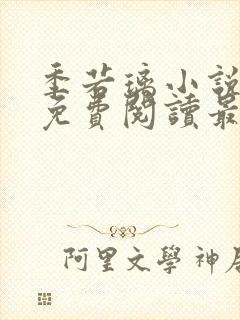 季若璃小說
免費閱讀最
阿里文學神居